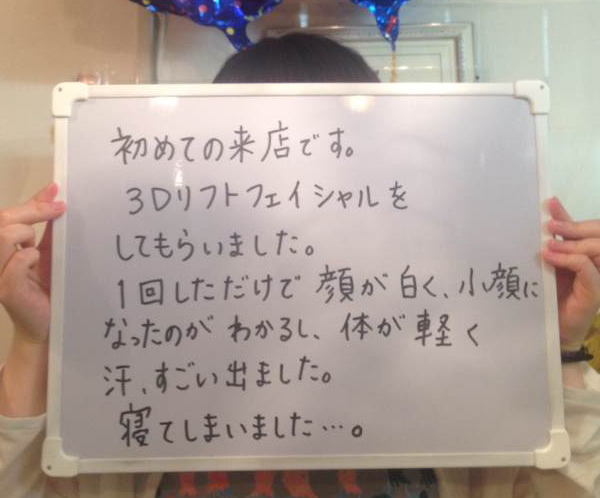 初めての来店です。
3Dリフトフェイシャルを
してもらいました。
1回しただけで 顔が 白く、小顔に
なったのが わかるし、体が 軽く
汗、すごい出ました。
寝てしまいました…。